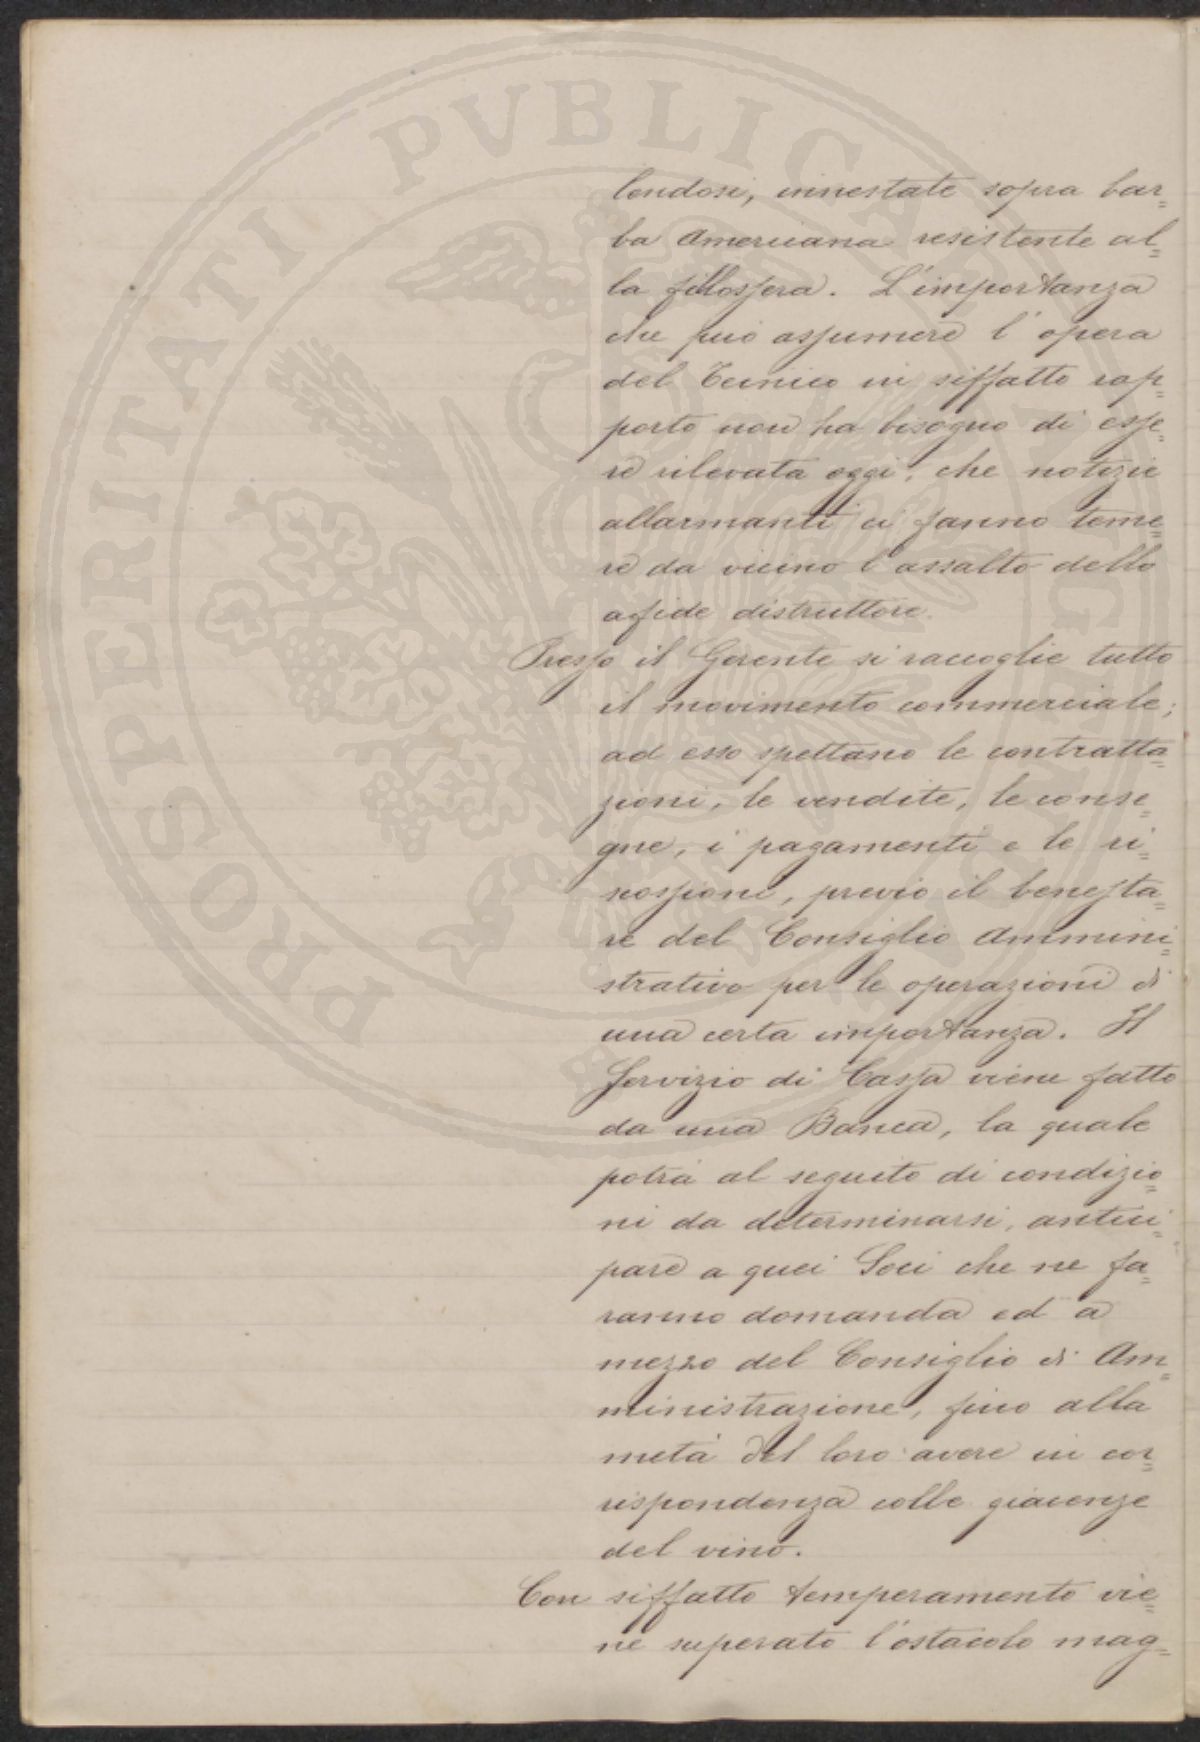 lendosi, innestate sopra bar=
ba Americana resistente al=
la fillossera. L'importanza
che può assumere l'opera
del Tecnico in siffatto rap=
porto non ha bisogno di esse=
re rilevata oggi, che notizie
allarmanti ci fanno teme=
re da vicino l'assalto dello
afide distruttore.
Presso il Gerente si raccoglie tutto
il movimento commerciale;
ad esso spettano le contratta=
zioni, le vendite, le conse=
gne, i pagamenti e le ri=
scossioni, previo il benesta=
re del Consiglio Ammini=
strativo per le operazioni di
una certa importanza. Il
Servizio di Cassa viene fatto
da una Banca, la quale
potrà al seguito di condizio=
ni da determinarsi, antici=
pare a quei Soci che ne fa=
ranno domanda ed a
mezzo del Consiglio di Am=
ministrazione, fino alla
metà del loro avere in cor=
rispondenza colle giacenze
del vino.
Con siffatto temperamento vie=
ne superato l'ostacolo mag=
PROSPERITATI PVBLICAE